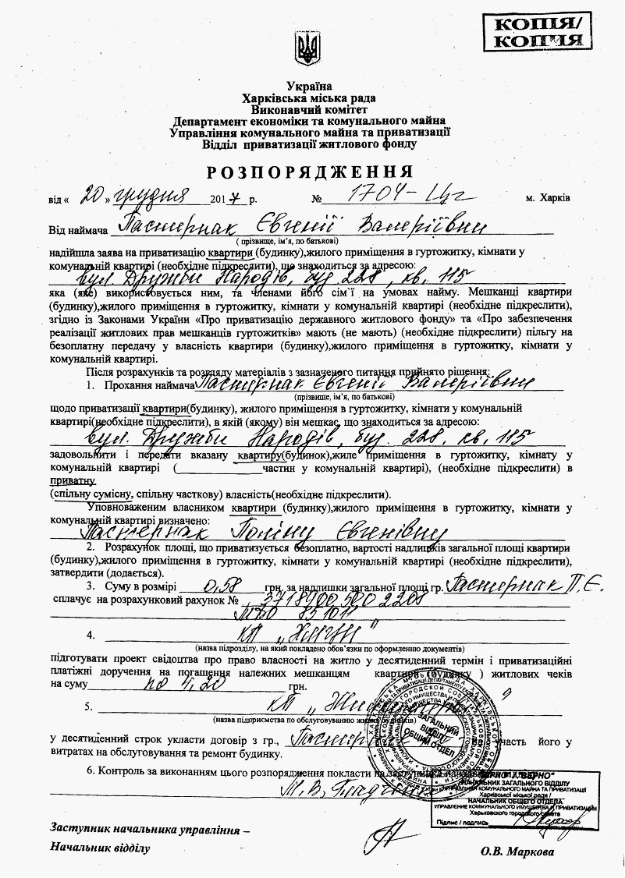 КОПІЯ/
КОПИЯ
Україна
Харківська міська рада
Виконавчий комітет
Департамент економіки та комунального майна
Управління комунального майна та приватизації
Відділ приватизації житлового фонду
РОЗПОРЯДЖЕННЯ
від « 20 » грудня 2017 р. № 1704- м. Харків
Від наймача Пастернак Євгенії Валеріївни
( прізвище, ім'я, по батькові)
надійшла заява на приватизацію квартири (будинку),жилого приміщення в гуртожитку, кімнати у
комунальній квартирі (необхідне підкреслити), що знаходиться за адресою:
вул. Дружби Народів, буд. 228, кв. 115
яка (яке) використовується ним, та членами його сім'ї на умовах найму. Мешканці квартири
(будинку),жилого приміщення в гуртожитку, кімнати у комунальній квартирі (необхідне підкреслити),
згідно із Законами України «Про приватизацію державного житлового фонду» та «Про забезпечення
реалізації житлових прав мешканців гуртожитків» мають (не мають) (необхідне підкреслити) пільгу на
безоплатну передачу у власність квартири (будинку),жилого приміщення в гуртожитку, кімнати у
комунальній квартирі.
Після розрахунків та розгляду матеріалів з зазначеного питання прийнято рішення:
1. Прохання наймача Пастернак Євгенії Валеріївни
(прізвище, ім'я, по батькові)
щодо приватизації квартири(будинку), жилого приміщення в гуртожитку, кімнати у комунальній
квартирі(необхідне підкреслити), в якій (якому) він мешкає, що знаходиться за адресою:
вул. Дружби Народів, буд. 228, кв. 115
задовольнити і передати вказану квартиру(будинок),жиле приміщення в гуртожитку, кімнату у
комунальній квартирі (____________частин у комунальній квартирі), (необхідне підкреслити) в
приватну
(спільну сумісну, спільну часткову) власність(необхідне підкреслити).
Уповноваженим власником квартири (будинку),жилого приміщення в гуртожитку, кімнати у
комунальній квартирі визначено:
Пастернак Поліну Євгенівну
2. Розрахунок площі, що приватизується безоплатно, вартості надлишків загальної площі квартири
(будинку),жилого приміщення в гуртожитку, кімнати у комунальній квартирі (необхідне підкреслити),
затвердити (додається).
3. Суму в розмірі 0,58 грн. за надлишки загальної площі гр. Пастернак П.Є.
сплачує на розрахунковий рахунок №
МФО 851011
4. КП
(назва підрозділу, на який покладено обов'язки по оформленню документів)
підготувати проект свідоцтва про право власності на житло у десятиденний термін і приватизаційні
платіжні доручення на погашення належних мешканцям квартири (будинку ) житлових чеків
на суму по 4,20 грн.
5. КП
(назва підприємства по обслуговуванню
у десятиденний строк укласти договір з гр., Пастернак участь його у
витратах на обслуговування та ремонт будинку.
6. Контроль за виконанням цього розпорядження покласти на
ЗАГАЛЬНИЙ
ВІДДІЛ
ОБЩИЙ ОТДЕЛ
ВІРНО / ВЕРНО
НАЧАЛЬНИК ЗАГАЛЬНОГО ВІДДІЛУ
УПРАВЛІННЯ КОМУНАЛЬНОГО МАЙНА ТА ПРИВАТИЗАЦІЇ
Харківської міської ради /
НАЧАЛЬНИК ОБЩЕГО ОТДЕЛА
УПРАВЛЕНИЕ КОММУНАЛЬНОГО ИМУЩЕСТВА И ПРИВАТИЗАЦИИ
Харьковского городского совета
Підпис / подпись
Заступник начальника управління –
Начальник відділу О.В. Маркова